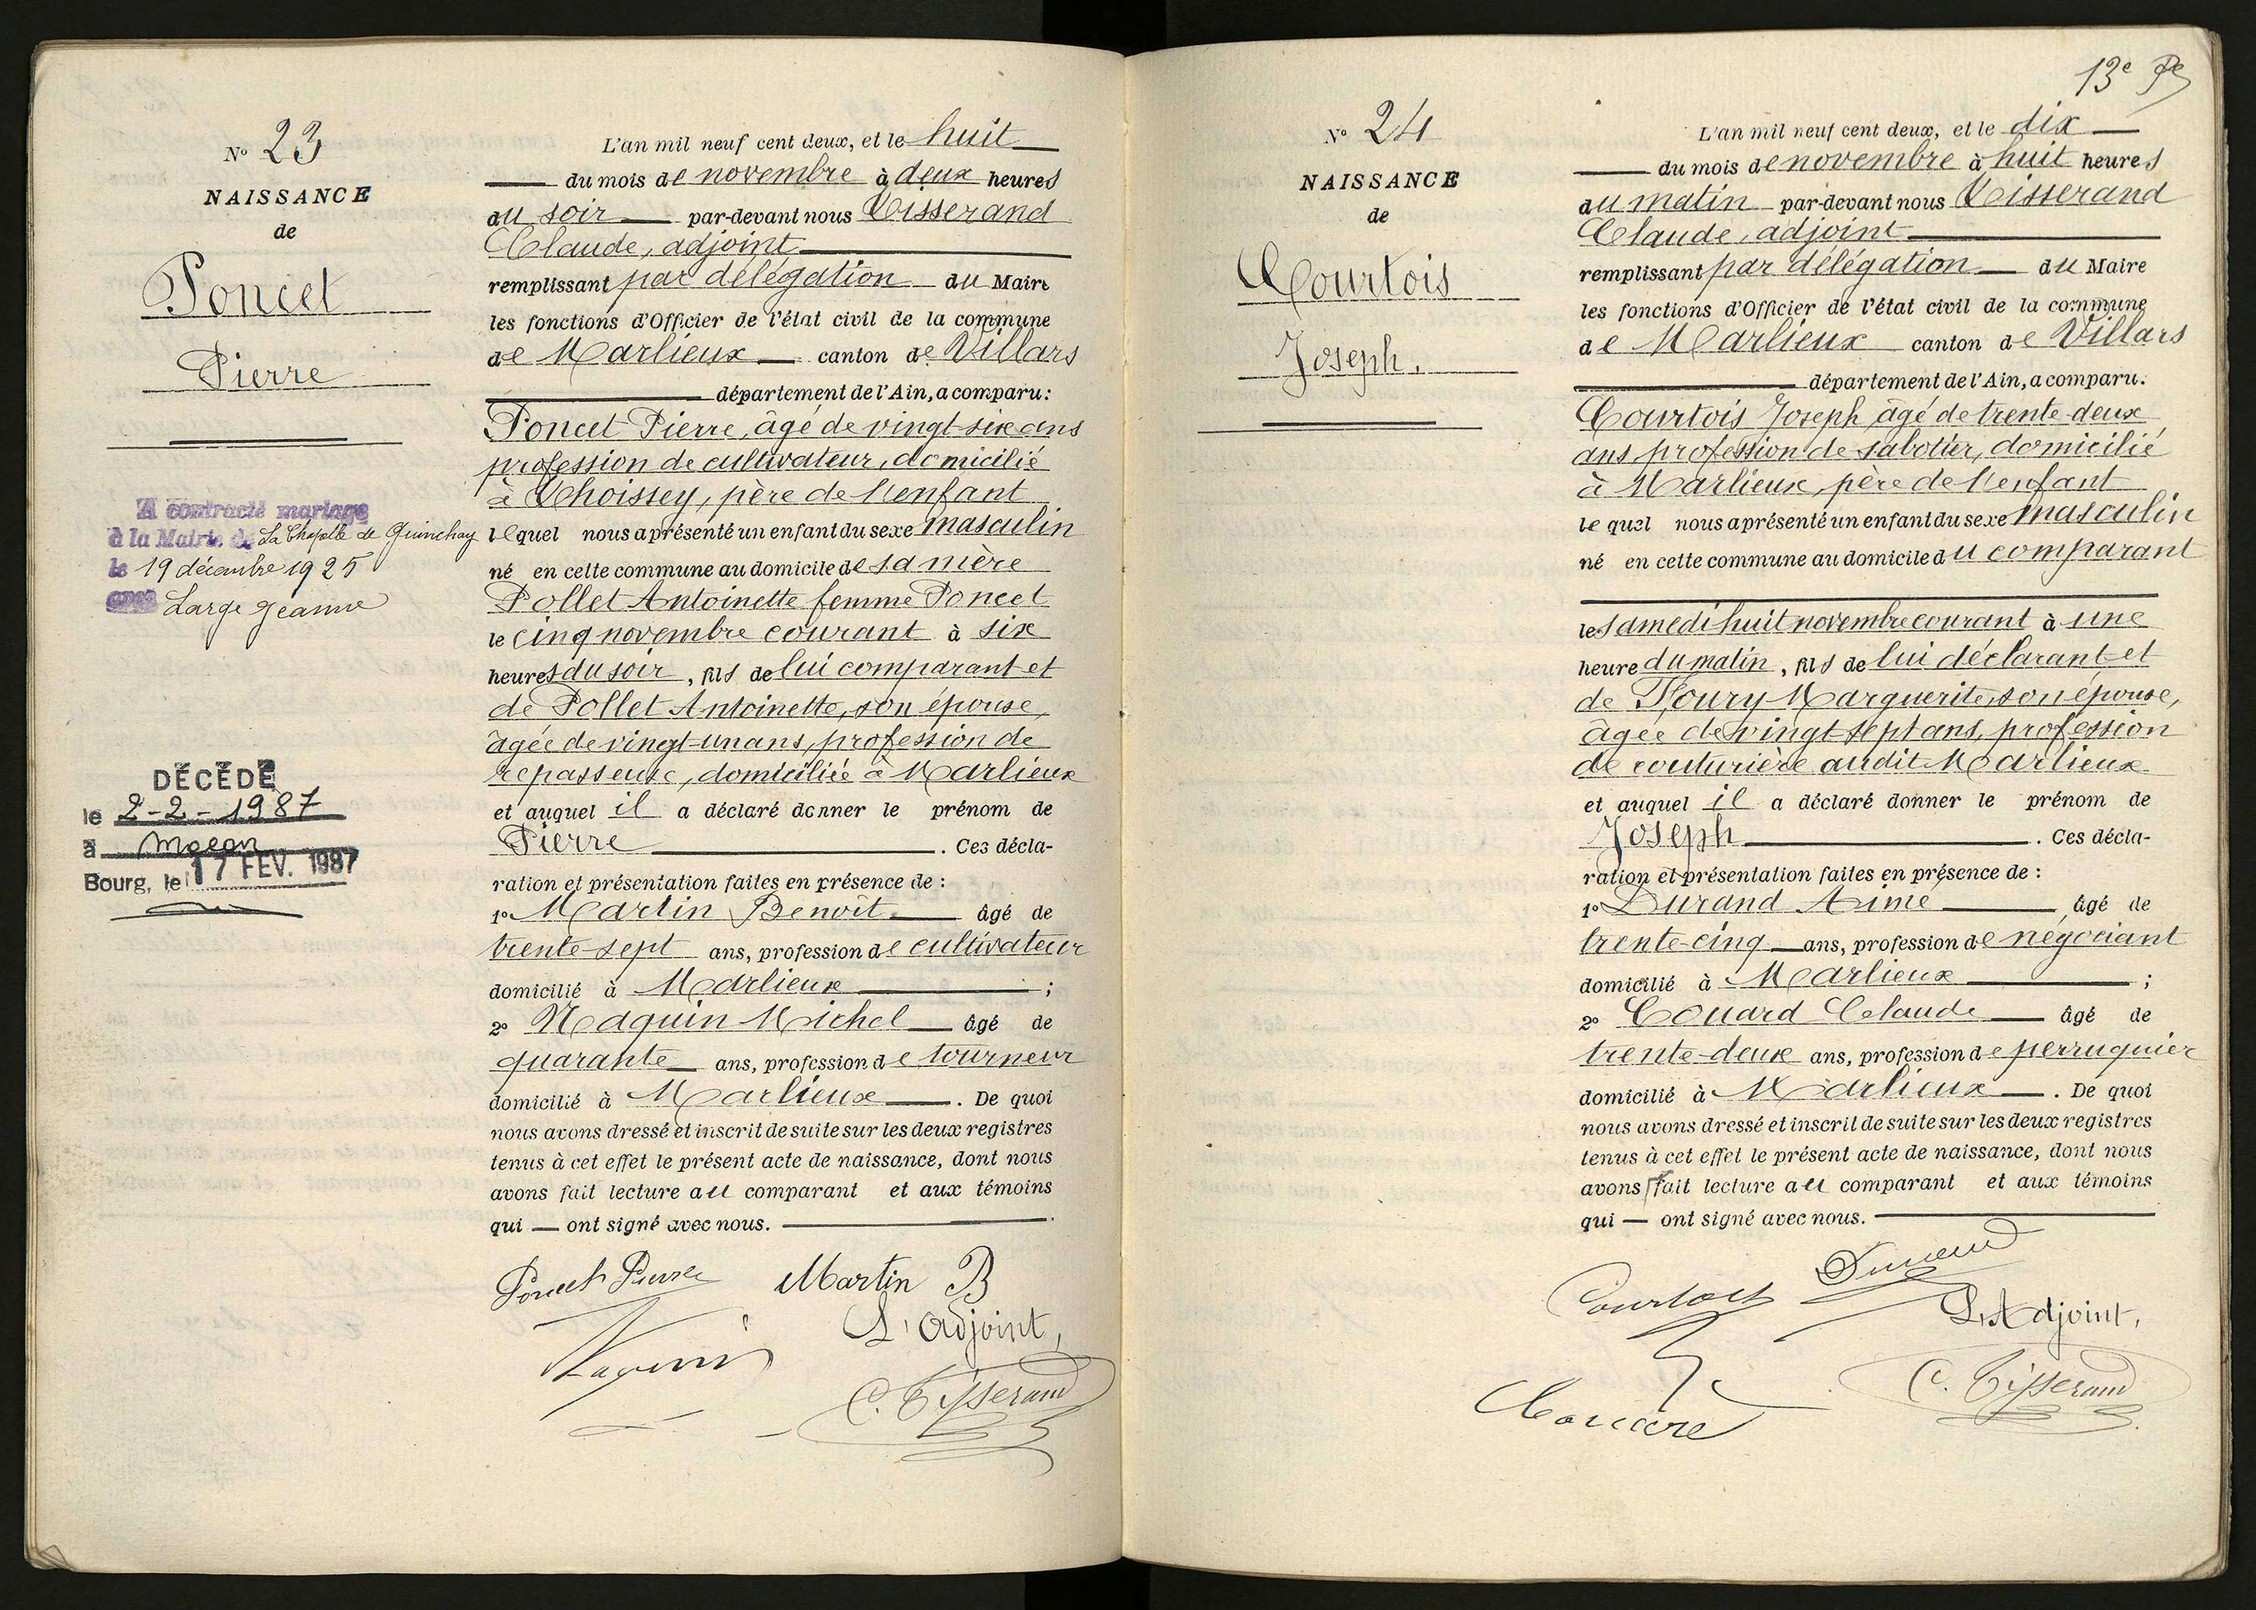 N° 23
NAISSANCE
de
Poncet
Pierre
A contracté mariage
à la Mairie de La Chapelle de Guinchay
le 19 décembre 1925
avec Large Jeanne
DÉCÉDÉ
le 2-2-1987
à Macon
Bourg, le 17 FEV. 1987
L'an mil neuf cent deux, et le huit
du mois de novembre à deux heures
du soir par-devant nous Tisserand
Claude, adjoint
remplissant par délégation du Maire
les fonctions d'Officier de l'état civil de la commune
de Marlieux canton de Villars
département de l'Ain, a comparu:
Poncet Pierre, âgé de vingt-six ans
profession de cultivateur, domicilié
à Thoissey, père de l'enfant
lequel nous a présenté un enfant du sexe masculin
né en cette commune au domicile de sa mère
Pollet Antoinette femme Poncet
le cinq novembre courant à six
heures du soir, fils de lui comparant et
de Pollet Antoinette, son épouse,
âgée de vingt-un ans, profession de
repasseuse, domiciliée à Marlieux
et auquel il a déclaré donner le prénom de
Pierre . Ces décla-
ration et présentation faites en présence de :
1° Martin Benoît âgé de
trente-sept ans, profession de cultivateur
domicilié à Marlieux ;
2° Naquin Michel âgé de
quarante ans, profession de tourneur
domicilié à Marlieux . De quoi
nous avons dressé et inscrit de suite sur les deux registres
tenus à cet effet le présent acte de naissance, dont nous
avons fait lecture au comparant et aux témoins
qui — ont signé avec nous.
Poncet Pierre Martin B
L'adjoint,
C. Tisserand
13e
N° 24
NAISSANCE
de
Courtois
Joseph.
L'an mil neuf cent deux, et le dix
du mois de novembre à huit heures
du matin par-devant nous Tisserand
Claude, adjoint
remplissant par délégation du Maire
les fonctions d'Officier de l'état civil de la commune
de Marlieux canton de Villars
département de l'Ain, a comparu.
Courtois Joseph âgé de trente-deux
ans profession de sabotier, domicilié
à Marlieux, père de l'enfant
lequel nous a présenté un enfant du sexe masculin
né en cette commune au domicile du comparant
le samedi huit novembre courant à une
heure du matin, fils de lui déclarant et
de Fleury Marguerite, son épouse,
âgée de vingt-sept ans, profession
de couturière audit Marlieux
et auquel il a déclaré donner le prénom de
Joseph . Ces décla-
ration et présentation faites en présence de :
1° Durand Aimé âgé de
trente-cinq ans, profession de négociant
domicilié à Marlieux ;
2° Couard Claude âgé de
trente-deux ans, profession de perruquier
domicilié à Marlieux . De quoi
nous avons dressé et inscrit de suite sur les deux registres
tenus à cet effet le présent acte de naissance, dont nous
avons fait lecture au comparant et aux témoins
qui — ont signé avec nous.
Courtois Durand
L'Adjoint,
C. Tisserand